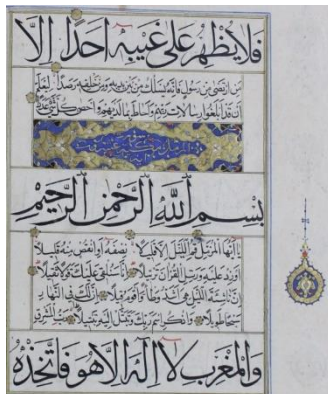 فلا يظهر على غيبه احدا الا
من ارتضى من رسول فانه يسلك من بين يديه ومن خلفه رصدا ليعلم
ان قد ابلغوا رسالات ربهم واحاط بما لديهم واحصى كل شيء عددا
بسم الله الرحمن الرحيم
يا ايها المزمل قم الليل الا قليلا نصفه او انقص منه قليلا
او زد عليه ورتل القرآن ترتيلا انا سنلقي عليك قولا ثقيلا
ان ناشئة الليل هي اشد وطئا واقوم قيلا ان لك في النهار
سبحا طويلا واذكر اسم ربك وتبتل اليه تبتيلا رب المشرق
والمغرب لا اله الا هو فاتخذه